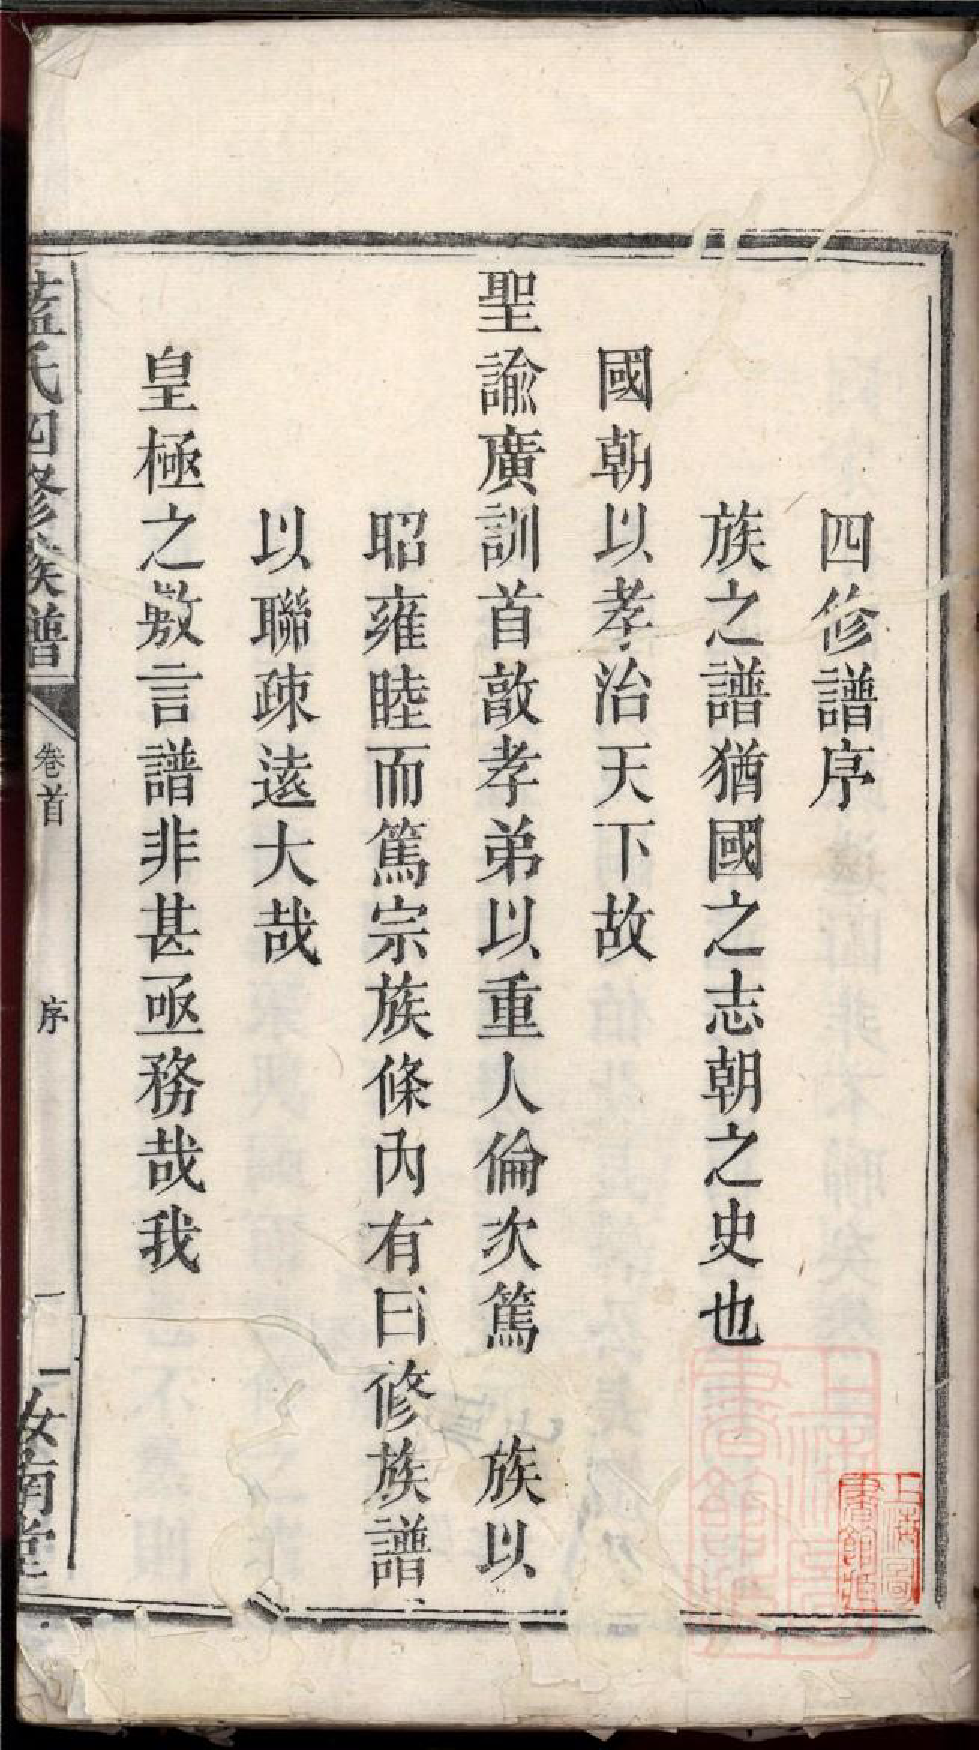 四修譜序
族之譜猶國之志朝之史也
國朝以孝治天下故
聖諭廣訓首敦孝弟以重人倫次篤族以
昭雍睦而篤宗族條內有曰修族譜
以聯疎遠大哉
皇極之敷言譜非甚亟務哉我
藍氏四修族譜
卷首
序
一
汝南堂
上海圖書館藏